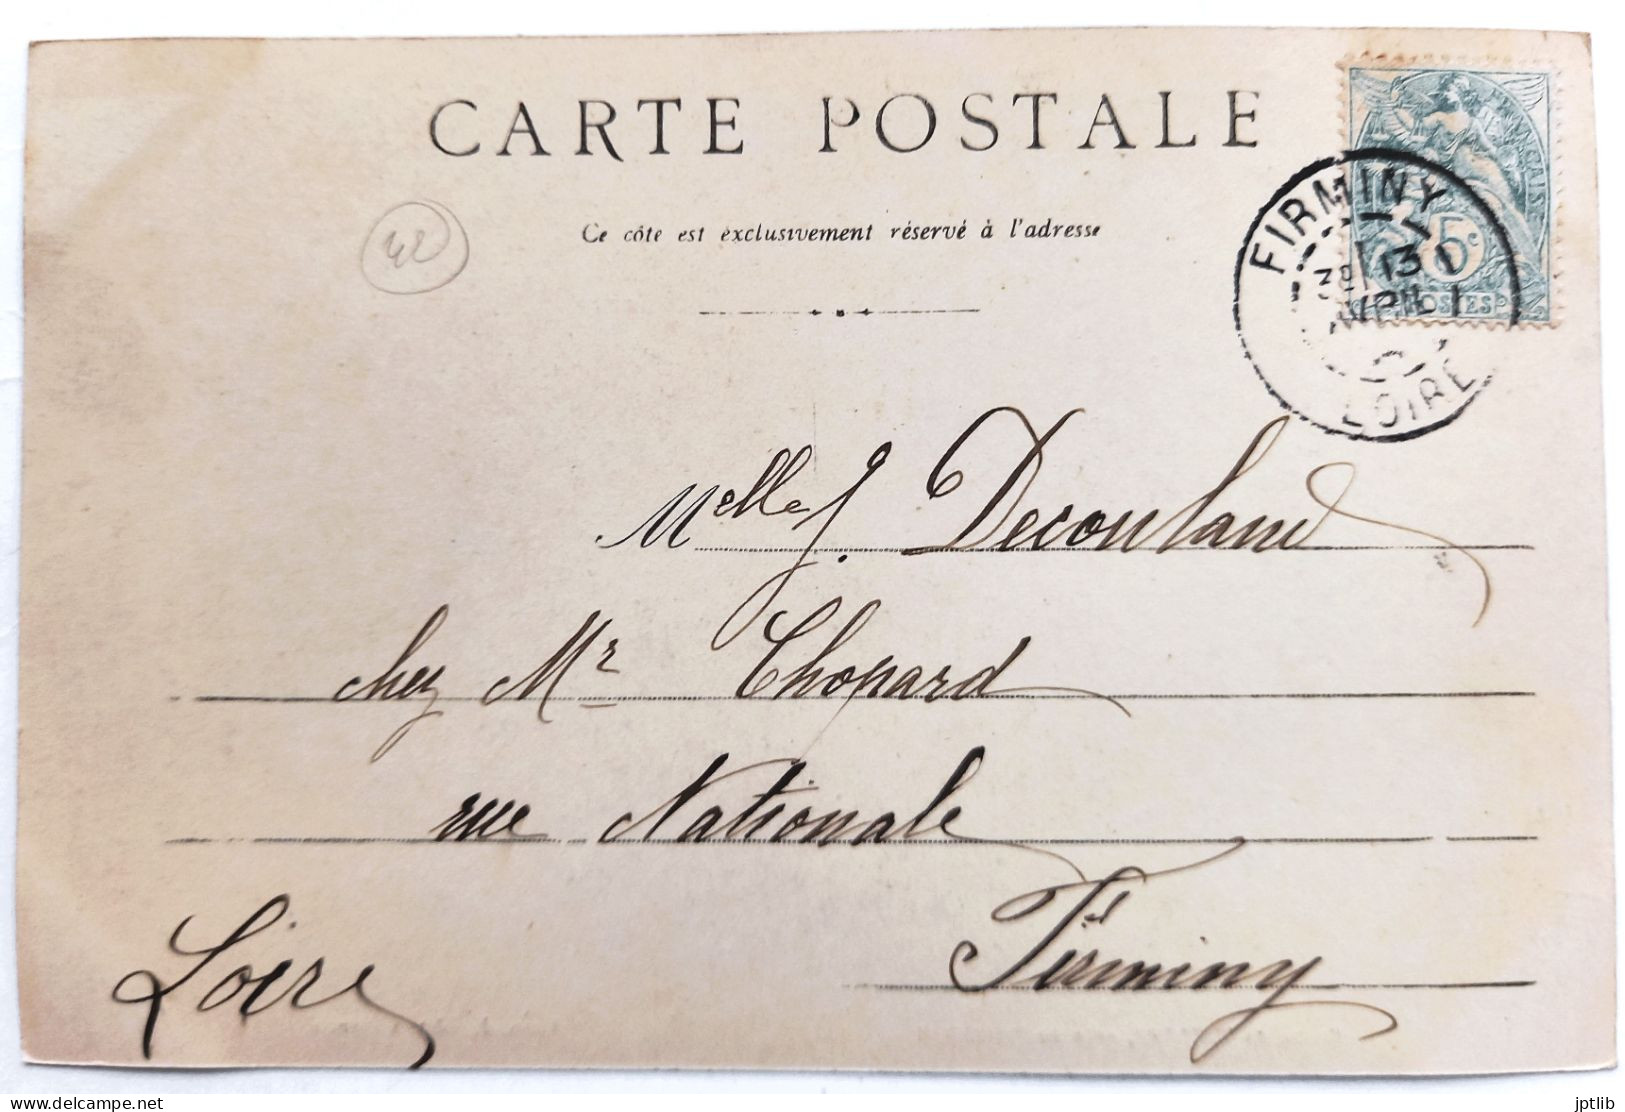 CARTE POSTALE
Ce côté est exclusivement réservé à l'adresse
42
FIRMINY
13
AVRIL
LOIRE
5c
POSTES
Melle J.
chez Mr Chopard
rue Nationale
Firminy
Loire
delcampe.net
jptlib